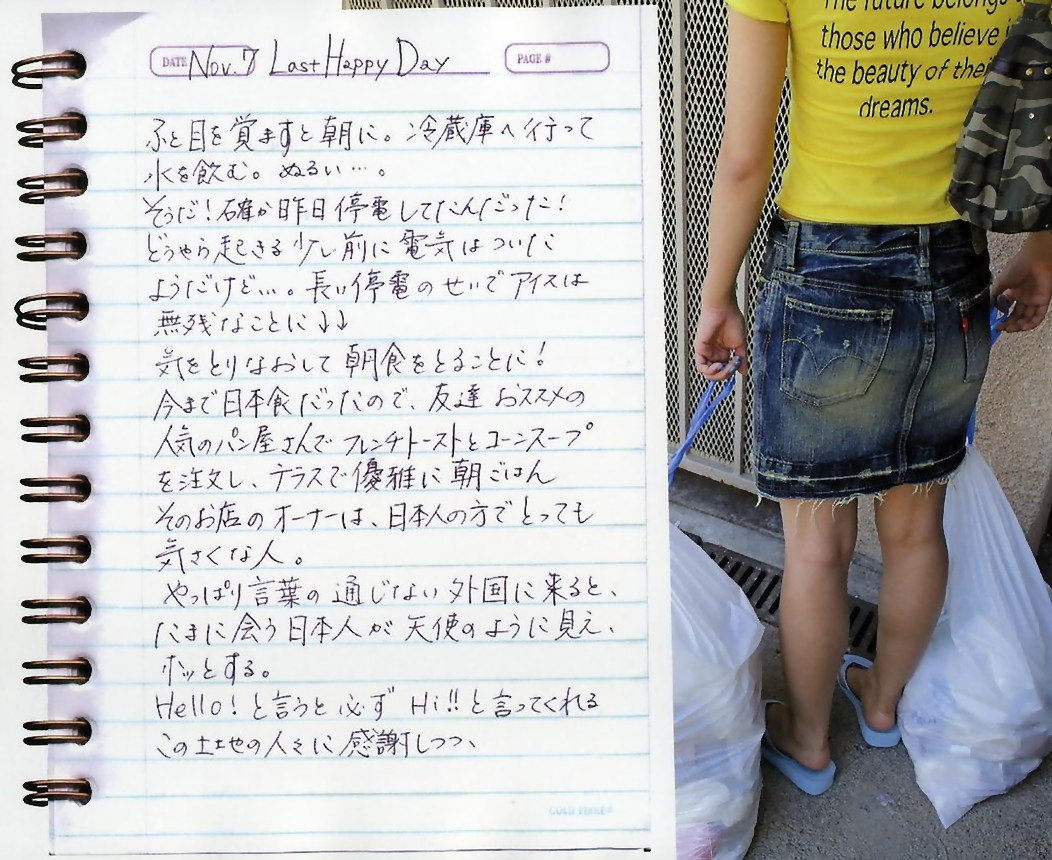 DATE Nov.7 Last Happy Day
PAGE #
ふと目を覚ますと朝に。冷蔵庫へ行って
水を飲む。ぬるい…。
そうだ!確か昨日停電してたんだった!
どうやら起きる少し前に電気はついた
ようだけど…。長い停電のせいでアイスは
無残なことに↓↓
気をとりなおして朝食をとることに!
今まで日本食だったので、友達おススメの
人気のパン屋さんでフレンチトーストとコーンスープ
を注文し、テラスで優雅に朝ごはん
そのお店のオーナーは、日本人の方でとっても
気さくな人。
やっぱり言葉の通じない外国に来ると、
たまに会う日本人が天使のように見え、
ホッとする。
Hello!と言うと必ずHi!!と言ってくれる
この土地の人々に感謝しつつ、
The future belongs
those who believe
the beauty of their
dreams.